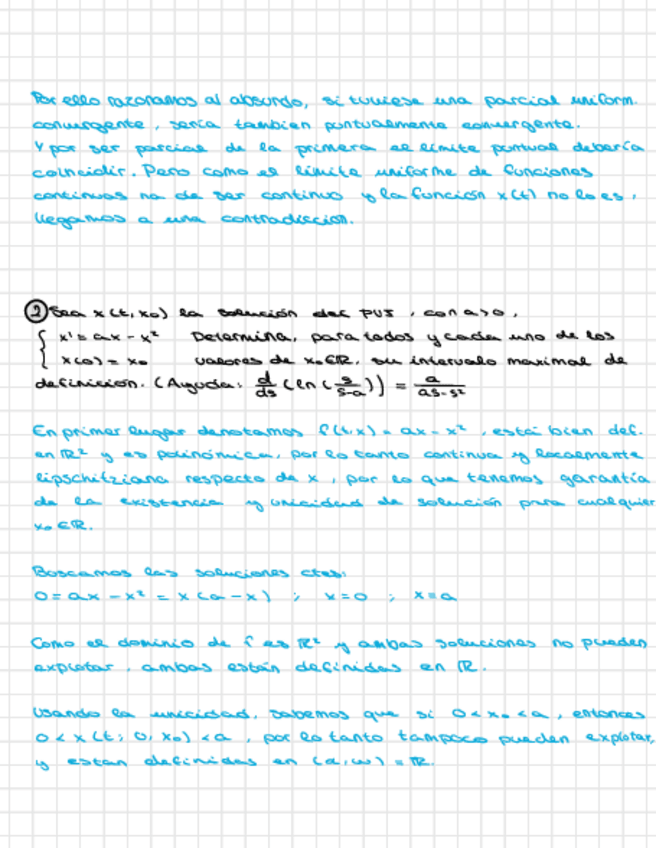 Por ello razonamos al absurdo, si tuviese una parcial uniform.
convergente, sería tambien puntualmente convergente.
Y por ser parcial de la primera el límite puntual debería
coincidir. Pero como el límite uniforme de funciones
continuas ha de ser continuo y la función x(t) no lo es,
llegamos a una contradicción.
② Sea x(t, x₀) la solución del PVI, con a>0,
{ x' = ax - x² Determina, para todos y cada uno de los
x(0) = x₀ valores de x₀∈ℝ, su intervalo maximal de
definición. (Ayuda: d/ds (ln(s/s-a)) = a/as-s²
En primer lugar denotamos f(t,x) = ax - x², está bien def.
en ℝ² y es polinómica, por lo tanto continua y localmente
lipschitziana respecto de x, por lo que tenemos garantía
de la existencia y unicidad de solución para cualquier
x₀∈ℝ.
Buscamos las soluciones ctes:
0 = ax - x² = x(a-x) ; x=0 ; x=a
Como el dominio de f es ℝ² y ambas soluciones no pueden
explotar, ambas están definidas en ℝ.
Usando la unicidad, sabemos que si 0 < x₀ < a, entonces
0 < x(t; 0, x₀) < a, por lo tanto tampoco pueden explotar,
y estan definidas en (α, ω) = ℝ.